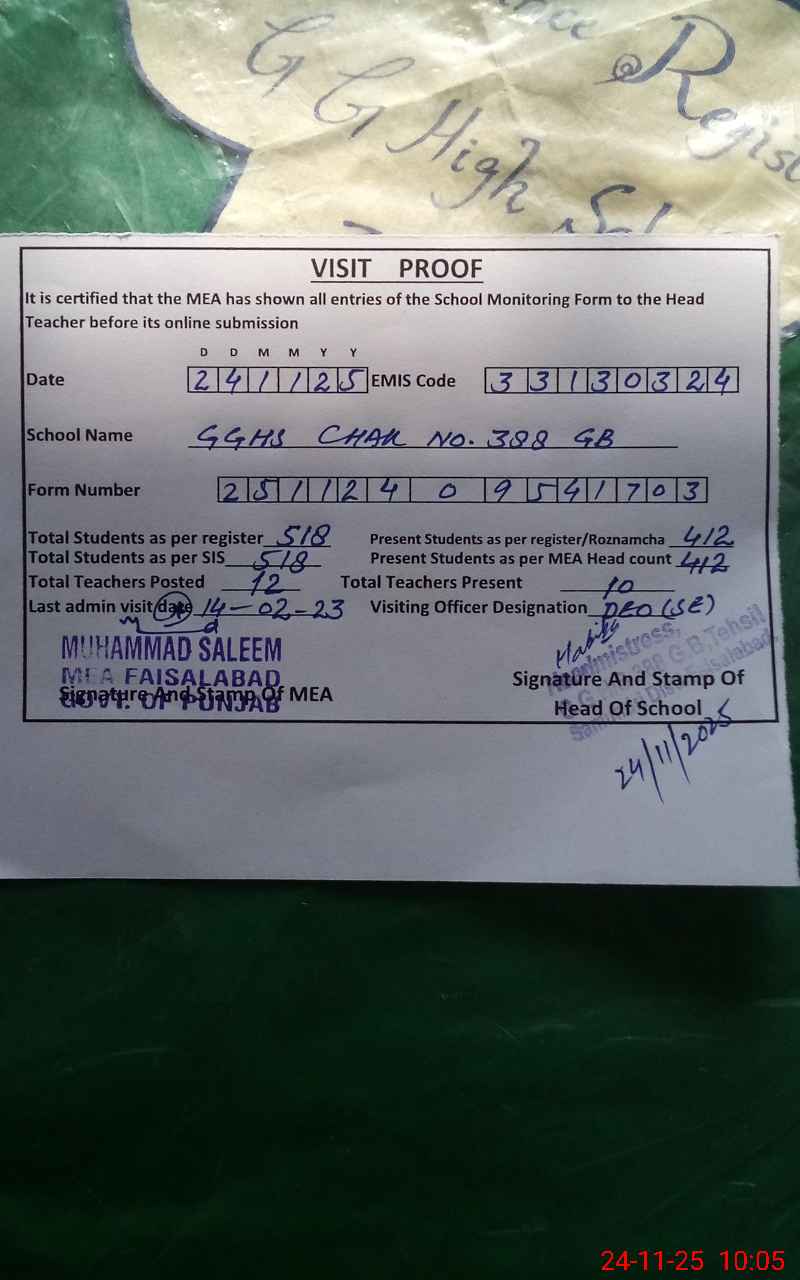 @ Regis
G G High
VISIT PROOF
It is certified that the MEA has shown all entries of the School Monitoring Form to the Head
Teacher before its online submission
D D M M Y Y
Date 241125 EMIS Code 33130324
School Name GGHS CHAK NO. 388 GB
Form Number 25112409541703
Total Students as per register 518 Present Students as per register/Roznamcha 412
Total Students as per SIS 518 Present Students as per MEA Head count 412
Total Teachers Posted 12 Total Teachers Present 10
Last admin visit date 14-02-23 Visiting Officer Designation DEO (SE)
MUHAMMAD SALEEM
MEA FAISALABAD
GOVT. OF PUNJAB
Signature And Stamp Of MEA
Headmistress,
388 G.B, Tehsil
Faisalabad
Signature And Stamp Of
Head Of School
24/11/2025
24-11-25 10:05